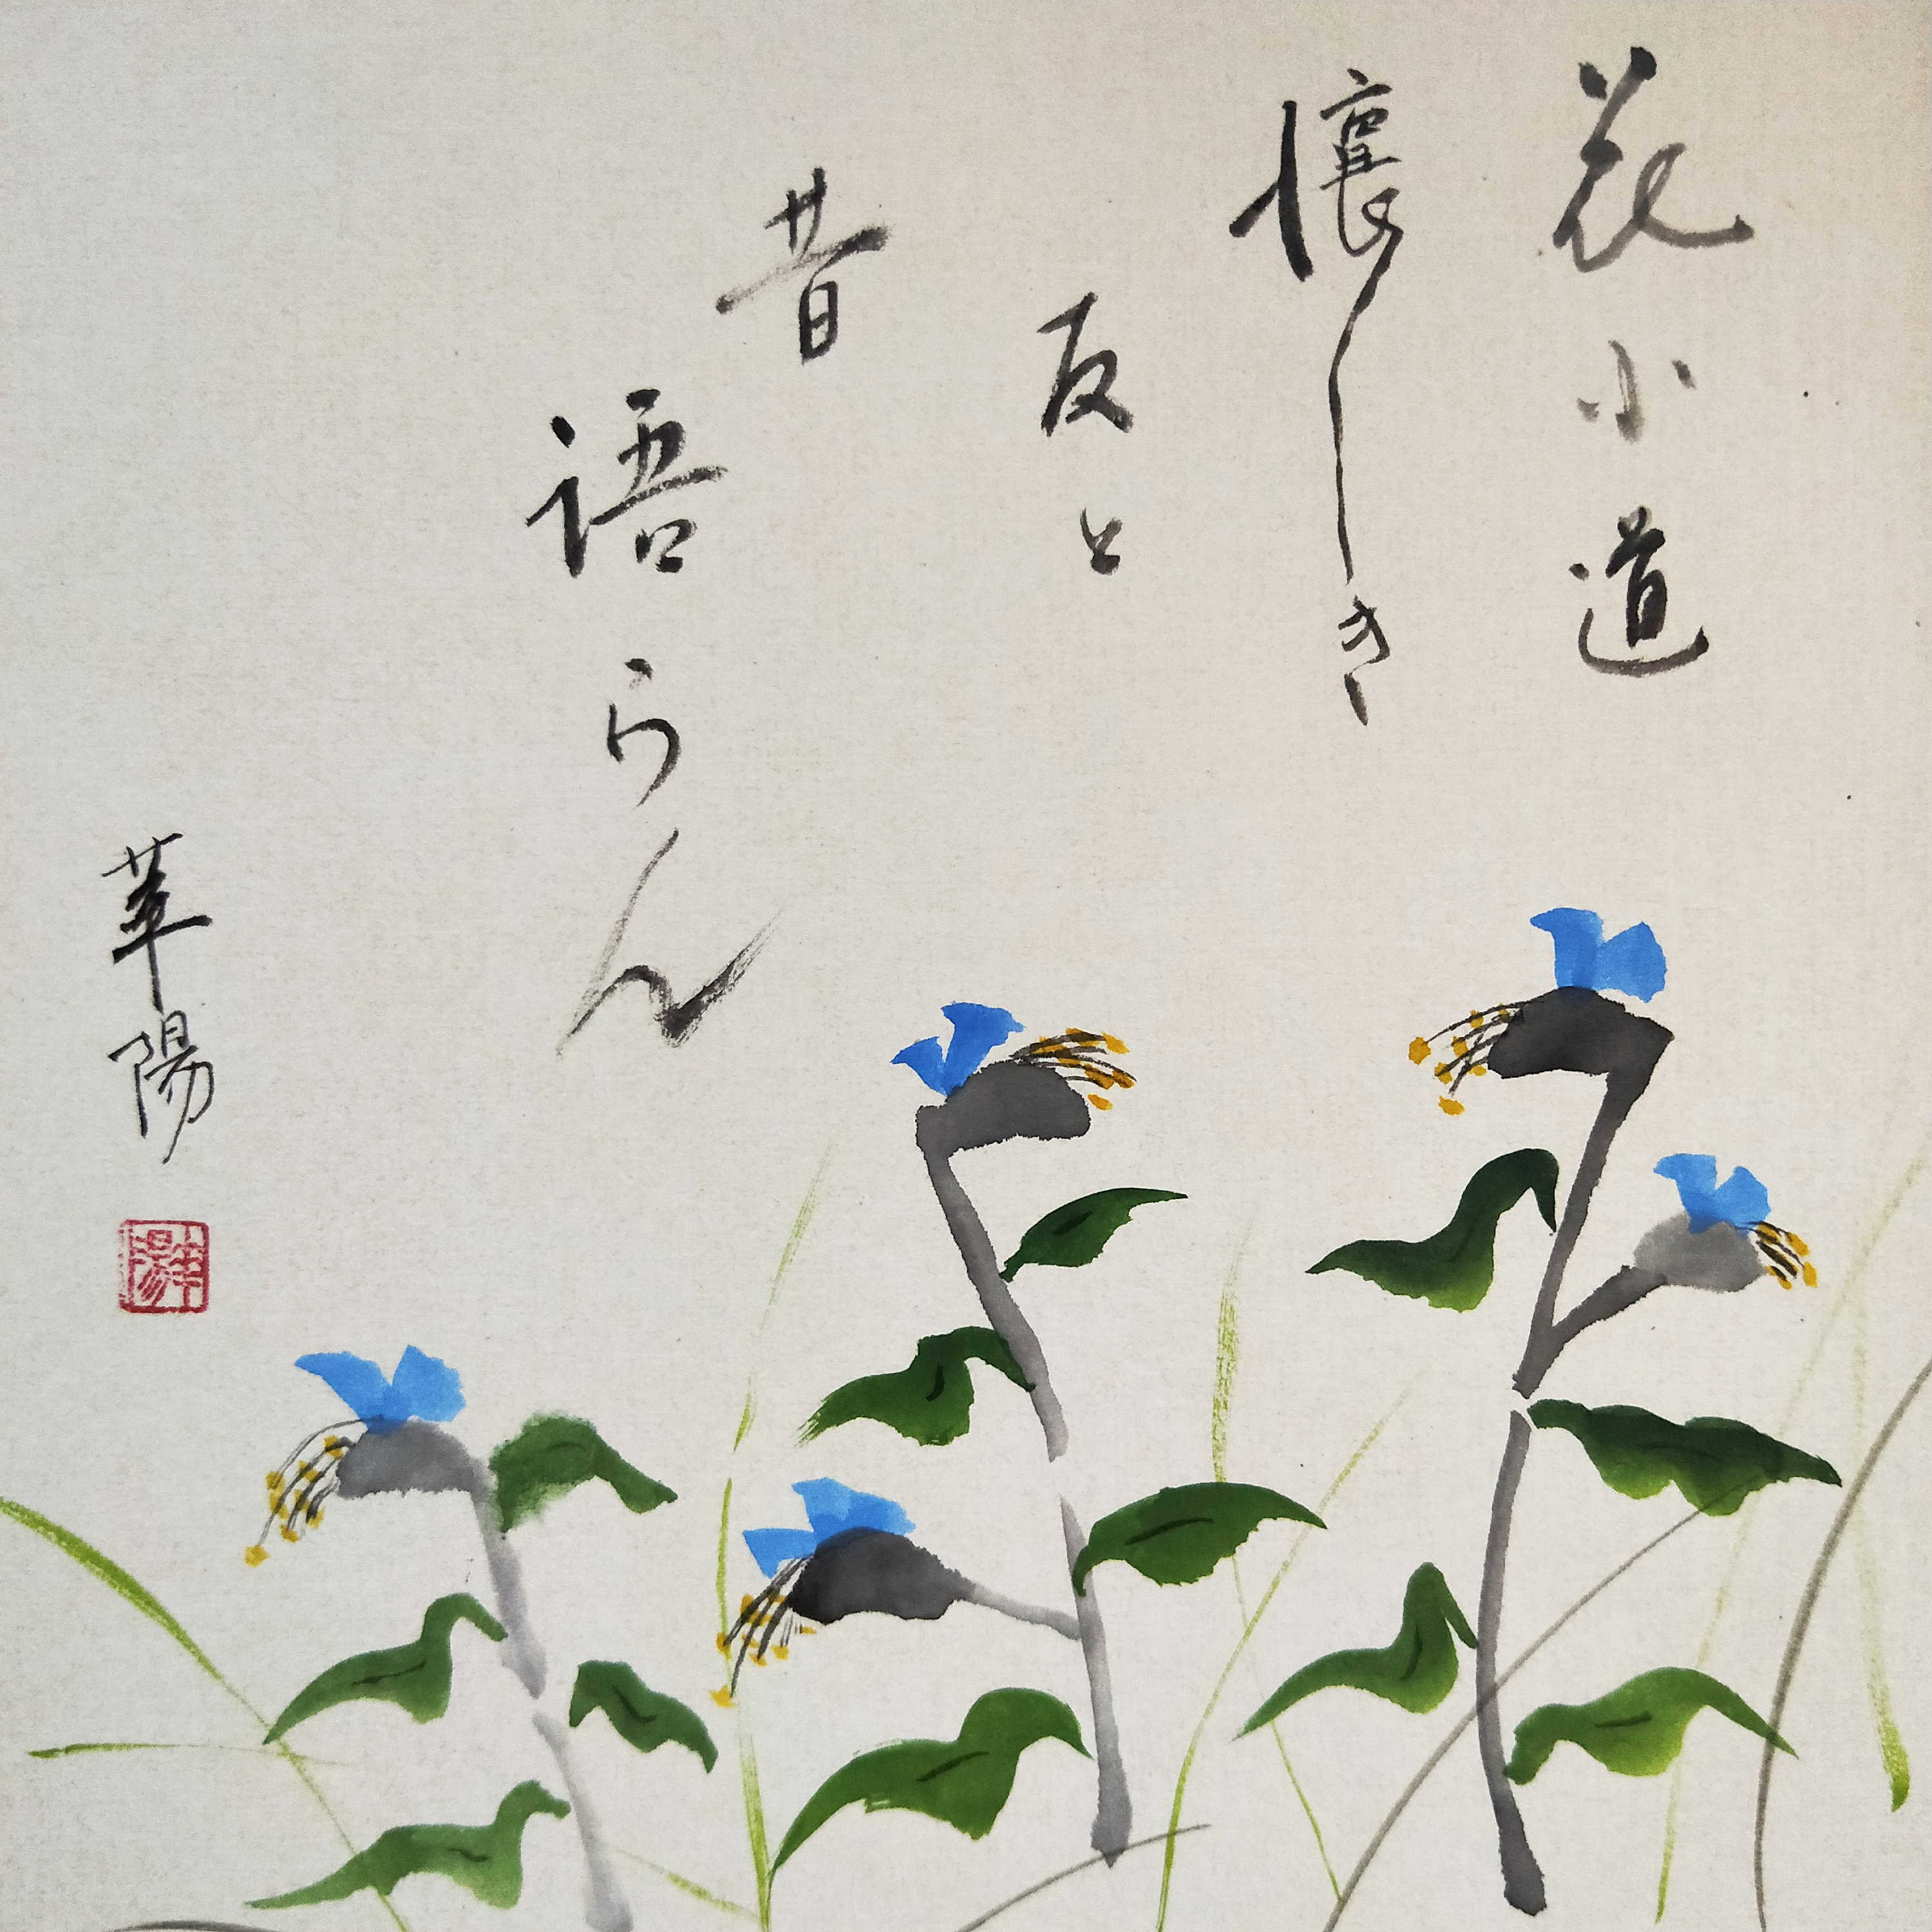 花小道
懐しき
友と
昔
語らん
華陽
華陽